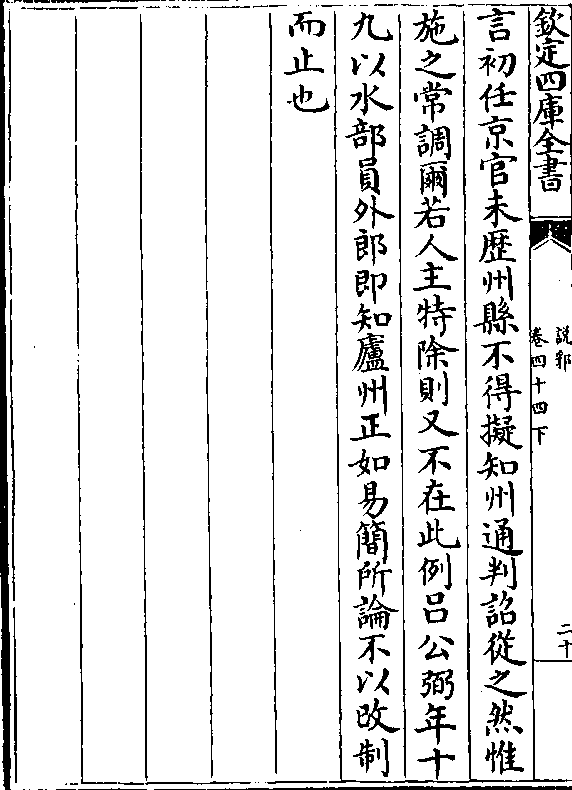 欽定四庫全書
說郛
卷四十四下
二十
言初任京官未歷州縣不得擬知州通判詔從之然惟
施之常調爾若人主特除則又不在此例吕公弼年十
九以水部員外郎即知廬州正如易簡所論不以改制
而止也